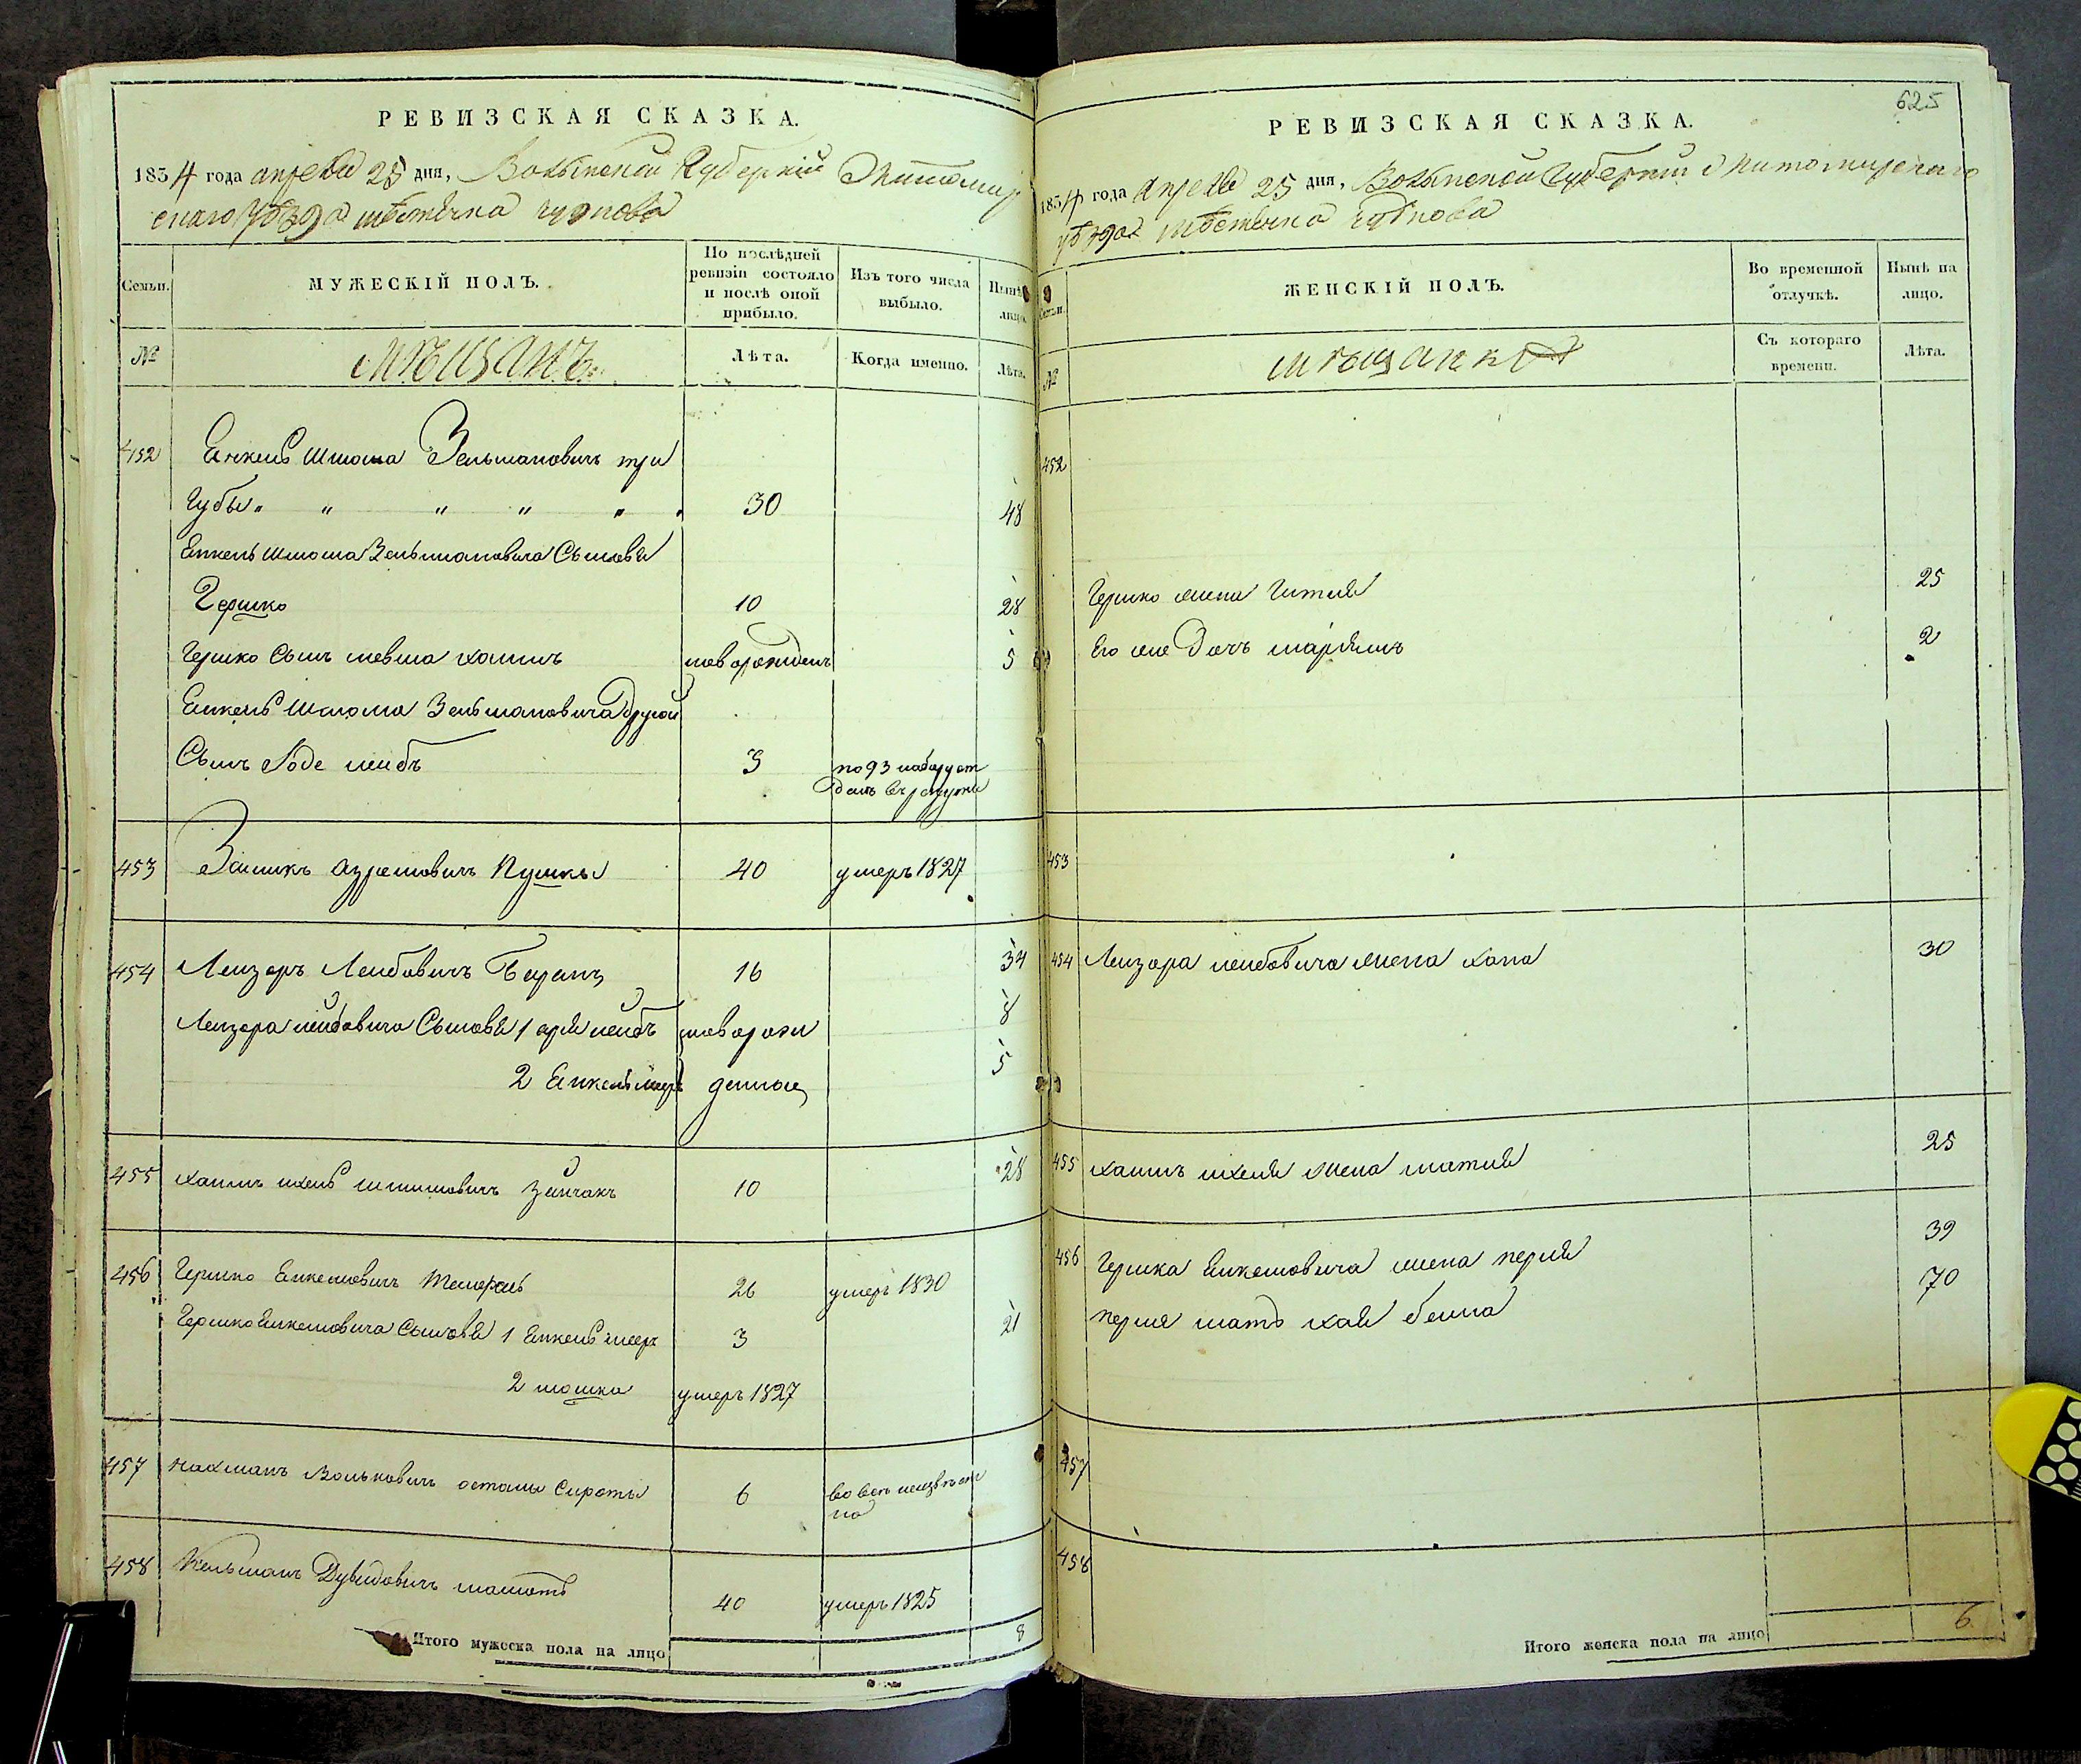 РЕВИЗСКАЯ СКАЗКА.
1834 года апреля 25 дня, Волынской Губернии Житомир
скаго уѣзда мѣстечка чуднова
Семьи.
МУЖЕСКІЙ ПОЛЪ.
По послѣдней ревизіи состояло и послѣ оной прибыло.
Изъ того числа выбыло.
Нынѣ лицо.
№
мѣщанъ
Лѣта.
Когда именно.
Лѣта.
452 Енкель Шмома Зельмановичъ три
Губы " " " " " " 30 48
Енкель Шмома Зельмановича Сыновья
Гершко 10 28
Гершко Сынъ хаимъ новорожденъ 5
Енкель Шмома Зельмановича Другой
Сынъ лейбъ 3 по 93 набору от
данъ въ рекруты
453 Пушкы 40 умеръ 1827
454 Лейзоръ Лейбовичъ Баранъ 16 34
Лейзора лейбовича Сыновья 1 лейбъ новорож 8
2 Енкель меер денные 5
455 хаимъ Зайчакъ 10 28
456 Гершко Енкелевичъ 26 умеръ 1830
Гершко Енкелевича Сыновья 1 Енкель меер 3 21
2 мошко умеръ 1827
457 нахманъ Вольковичъ Сироты 6 неизвѣст
но
458 Кельманъ Дувидовичъ 40 умеръ 1825
Итого мужеска пола на лицо 8
625
РЕВИЗСКАЯ СКАЗКА.
1834 года апреля 25 дня, Волынской Губернии Житомирскаго
уѣзда мѣстечка чуднова
Семьи.
ЖЕНСКІЙ ПОЛЪ.
Во временной отлучкѣ.
Нынѣ на лицо.
№
мѣщанки
Съ котораго времени.
Лѣта.
452
Гершко жена Гитля 25
Его же Дочъ марьямъ 2
453
454 Лейзора лейбовича жена хана 30
455 хаимъ ихеля жена матля 25
456 Гершка Енкелевича жена перля 39
перля мать хая бейла 70
457
458
Итого женска пола на лицо 6